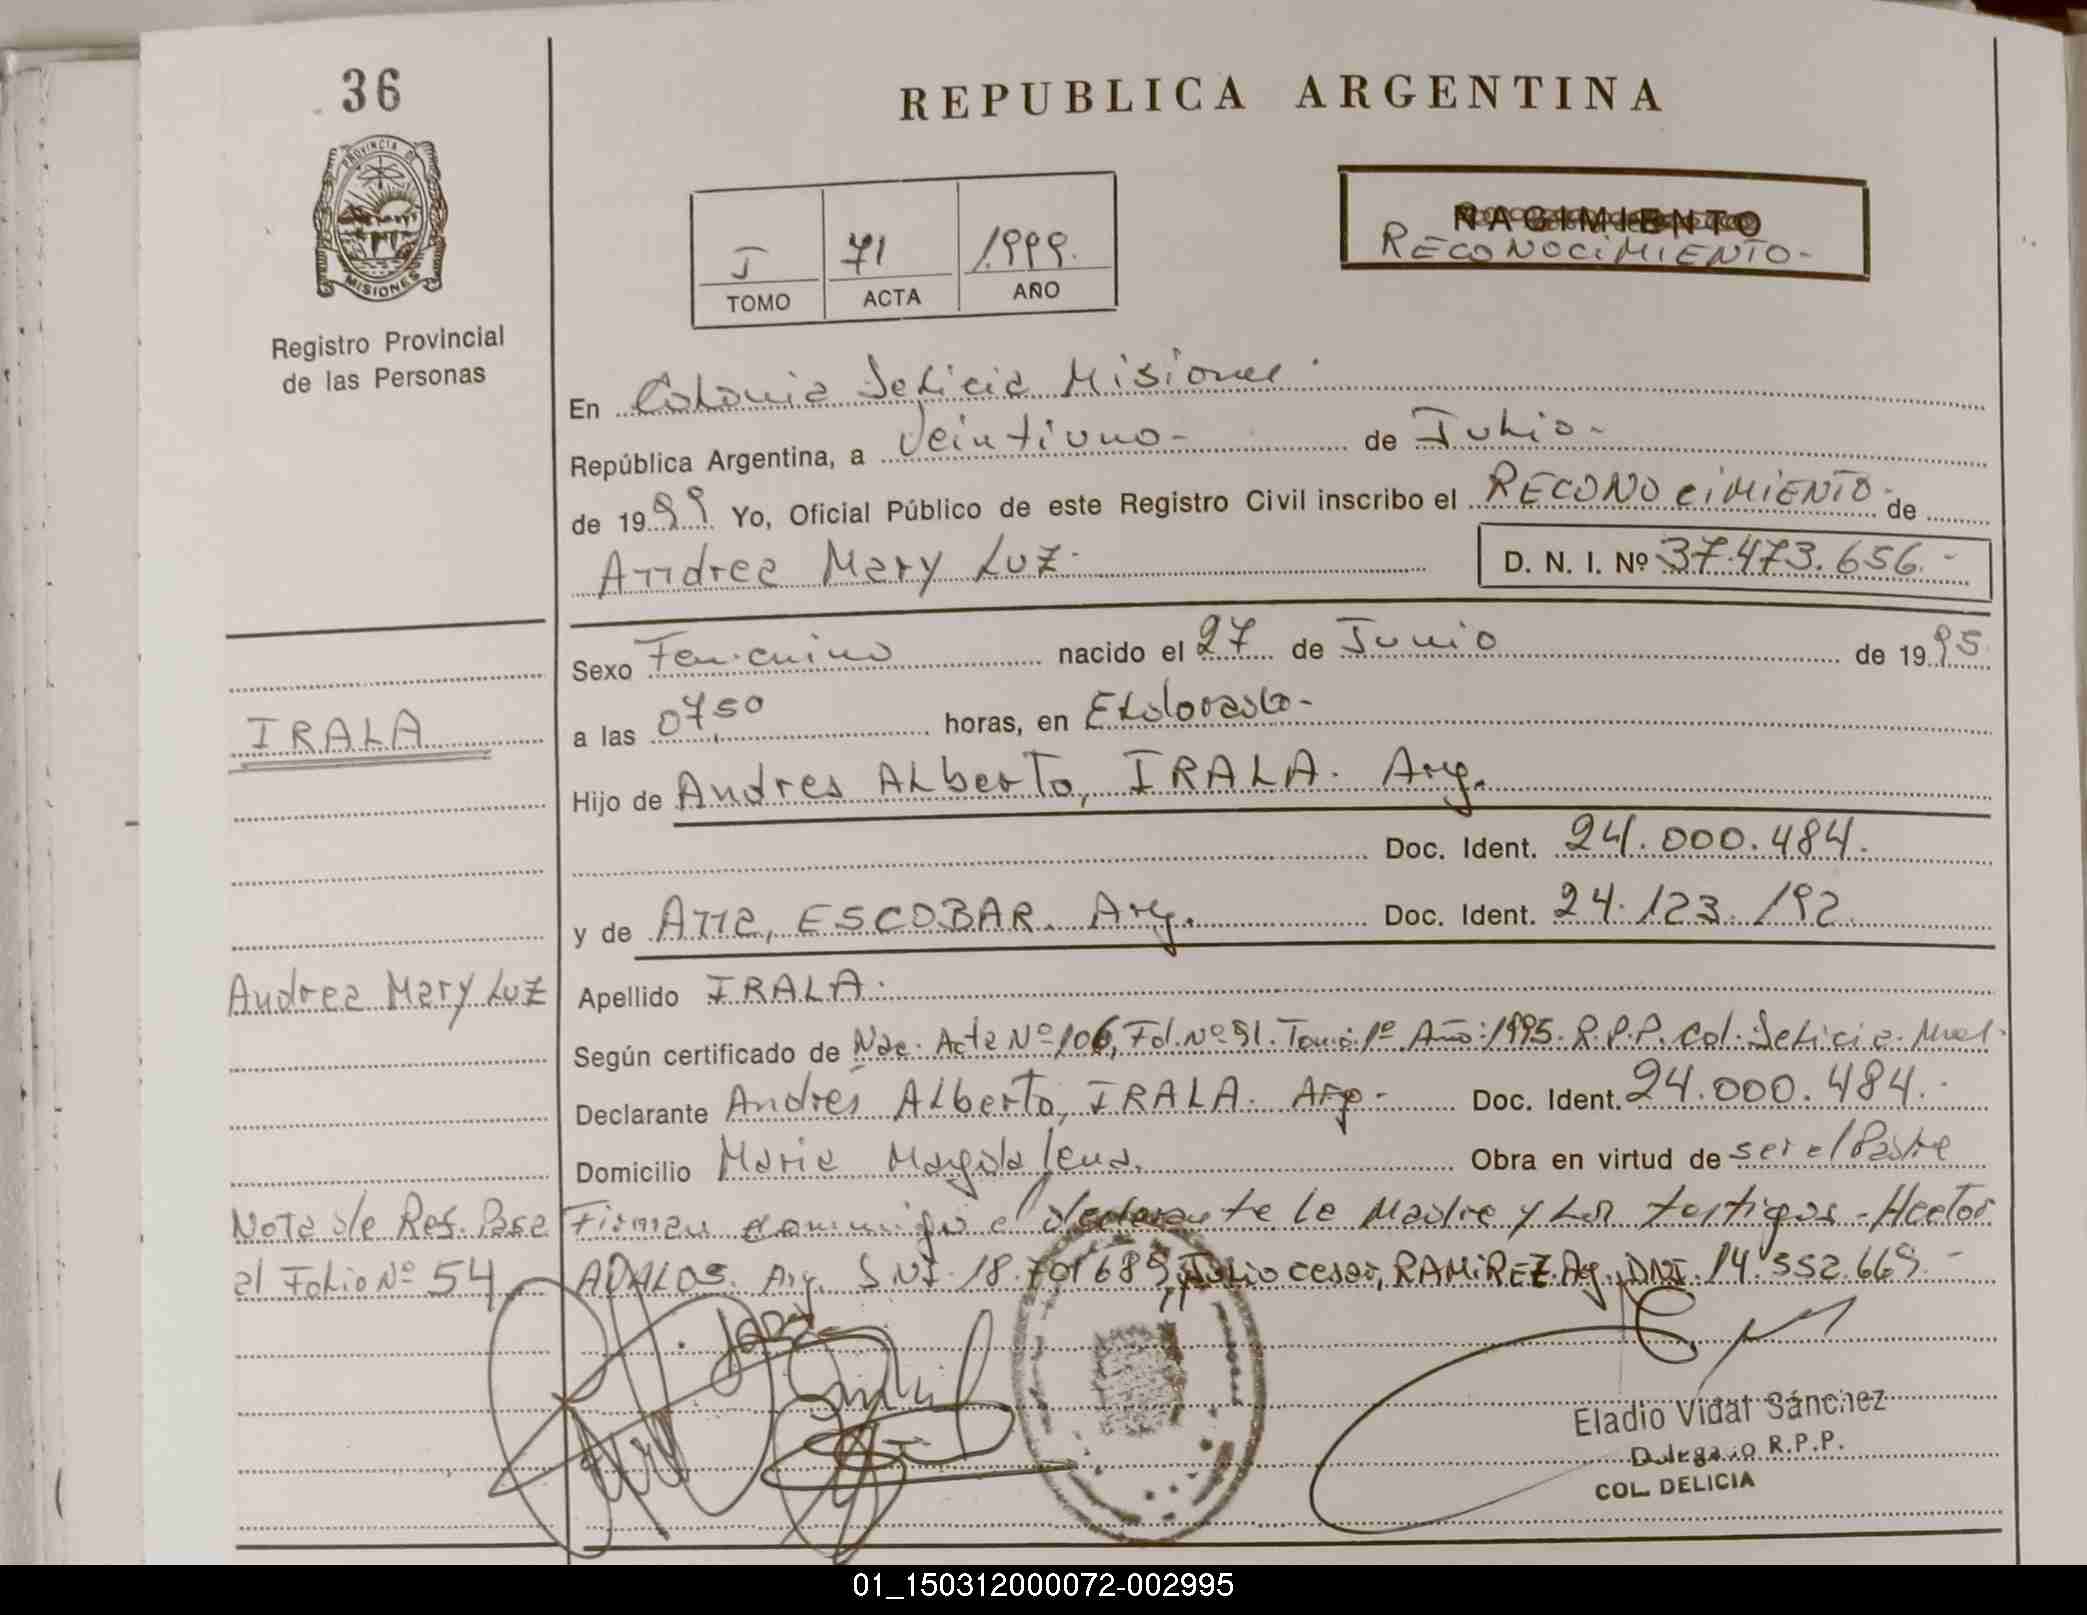 36
REPUBLICA ARGENTINA
PROVINCIA DE
MISIONES
Registro Provincial
de las Personas
I 71 1999.
TOMO ACTA AÑO
NACIMIENTO
RECONOCIMIENTO-
En Colonia Delicia Misiones.
República Argentina, a Veintiuno- de Julio-
de 1999 Yo, Oficial Público de este Registro Civil inscribo el RECONOCIMIENTO- de
Andrea Mary Luz- D. N. I. Nº 37.473.656.-
Sexo Femenino nacido el 27 de Junio de 1995
IRALA
a las 07,50 horas, en Eldorado-
Hijo de Andres ALberto, IRALA. Arg.
Doc. Ident. 24.000.484.
y de Ana, ESCOBAR. Arg. Doc. Ident. 24.123.192.
Andrea Mary Luz
Apellido IRALA.
Según certificado de Nac. Acta Nº 106, Fol. Nº 91. Tomo: 1º Año: 1995. R.P.P. Col. Delicia.
Declarante Andrés ALberto, IRALA. Arg- Doc. Ident. 24.000.484.-
Domicilio Maria Magdalena. Obra en virtud de ser el Padre
Nota de Ref. Pasa
al Folio Nº 54
Firman conmigo el declarante la Madre y Los testigos-Hector
AVALOS. Arg. DNI. 18.701689, Julio cesar, RAMIREZ. Ag. DNI. 14.552.669-
Eladio Vidal Sánchez
Delegado R.P.P.
COL. DELICIA
01_150312000072-002995